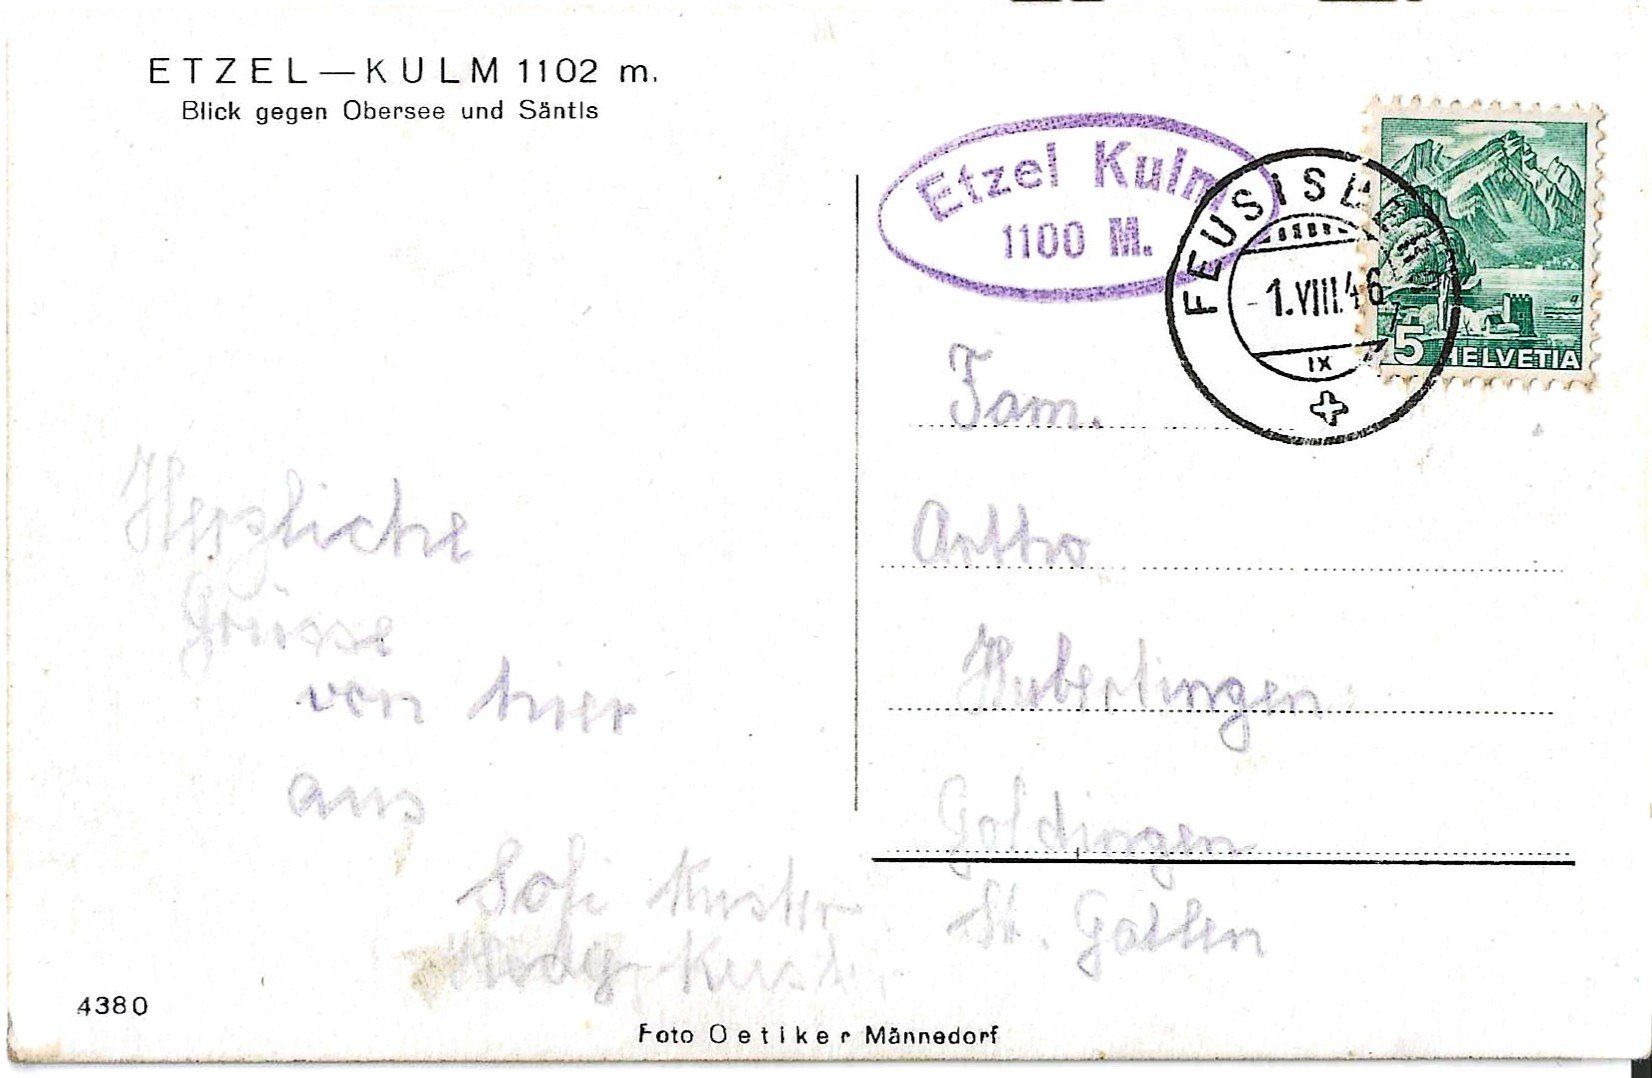 ETZEL—KULM 1102 m.
Blick gegen Obersee und Säntis
Etzel Kulm
1100 M.
FEUSISBERG
-1.VIII.46
IX
5 HELVETIA
Herzliche
Grüsse
von hier
aus
Sofi Kuster
Hedy Kuster
Fam.
Artho
Huberlingen
Goldingen
St. Gallen
4380
Foto Oetiker Männedorf